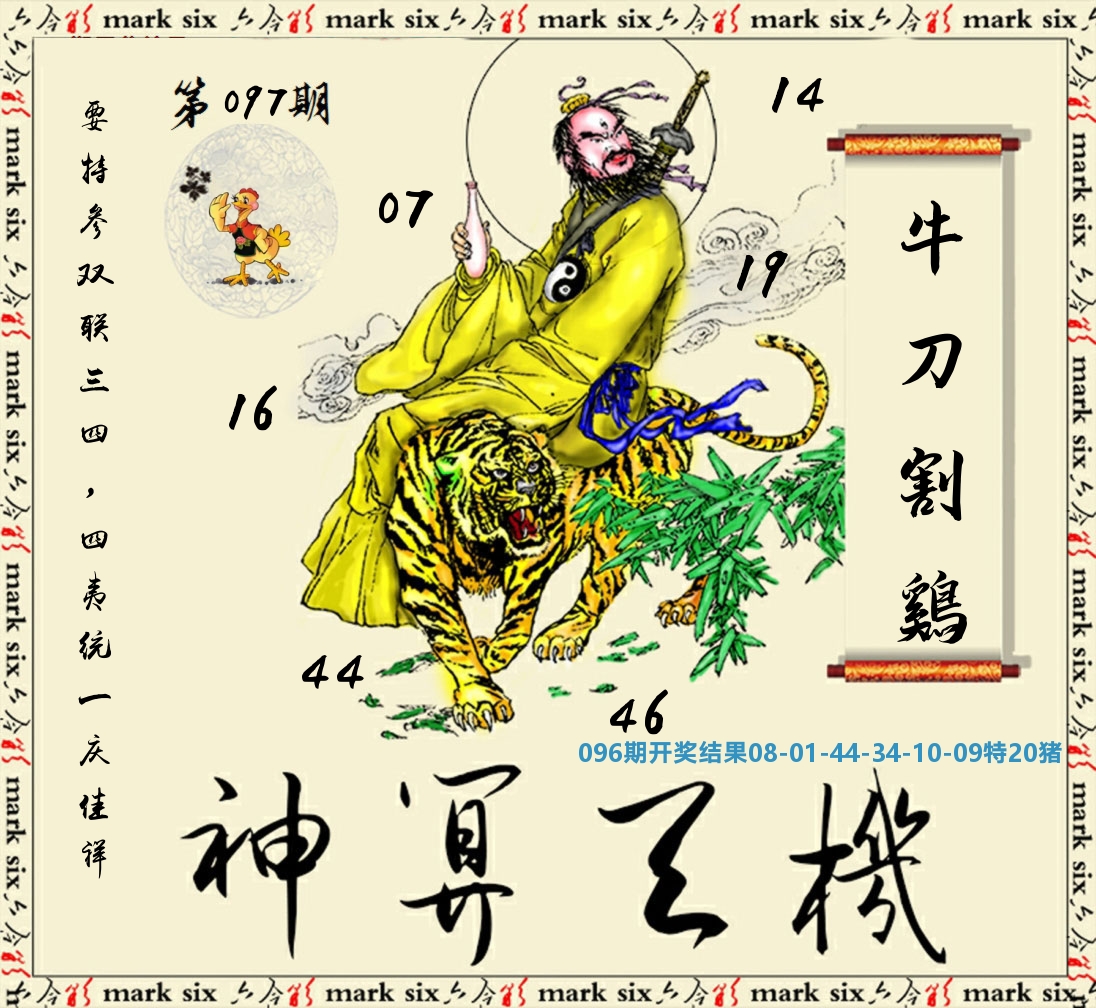 第097期
要特参双联三四，四夷统一庆佳祥
14
07
19
16
44
46
牛刀割鷄
096期开奖结果08-01-44-34-10-09特20猪
神算天機
mark six mark six mark six mark six mark six
mark six mark six mark six mark six
mark six mark six mark six mark six
mark six mark six mark six mark six mark six